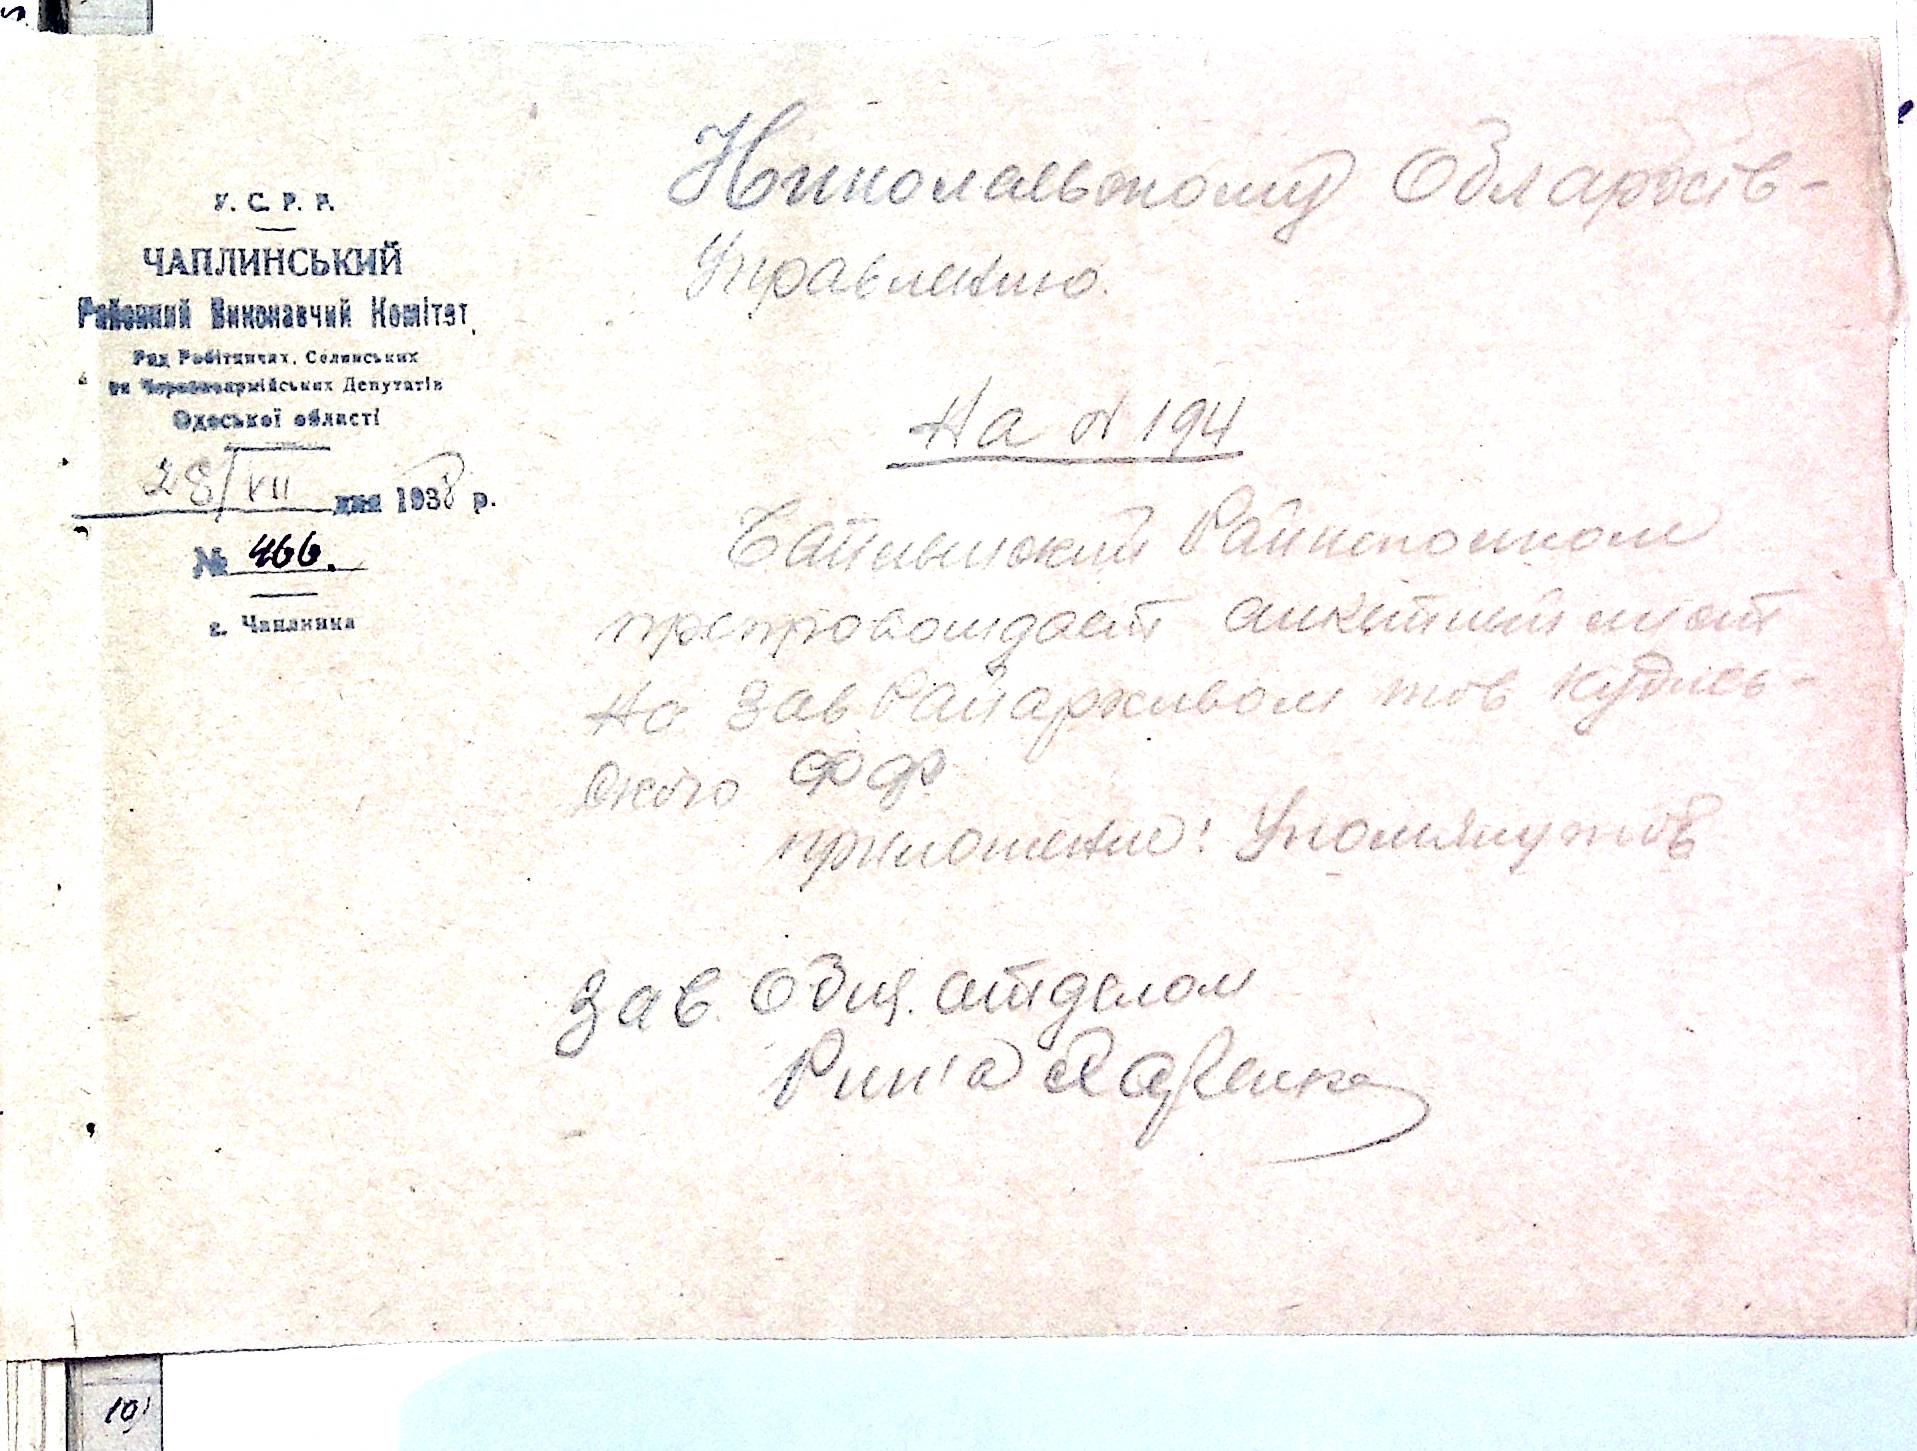 У. С. Р. Р.
ЧАПЛИНСЬКИЙ
Районний Виконавчий Комітет
Рад Робітничих, Селянських
та Червоноармійських Депутатів
Одеської області
28/VII дня 1938 р.
№ 466.
с. Чаплинка
Николаевскому Облархів-
Управлению.
На № 194
Райисполком
препровождает анкетний лист
на Зав Райархивом тов Кудись-
ского ФФ
приложение: Упомянутов
Зав. Общ. отделом
Рика
10